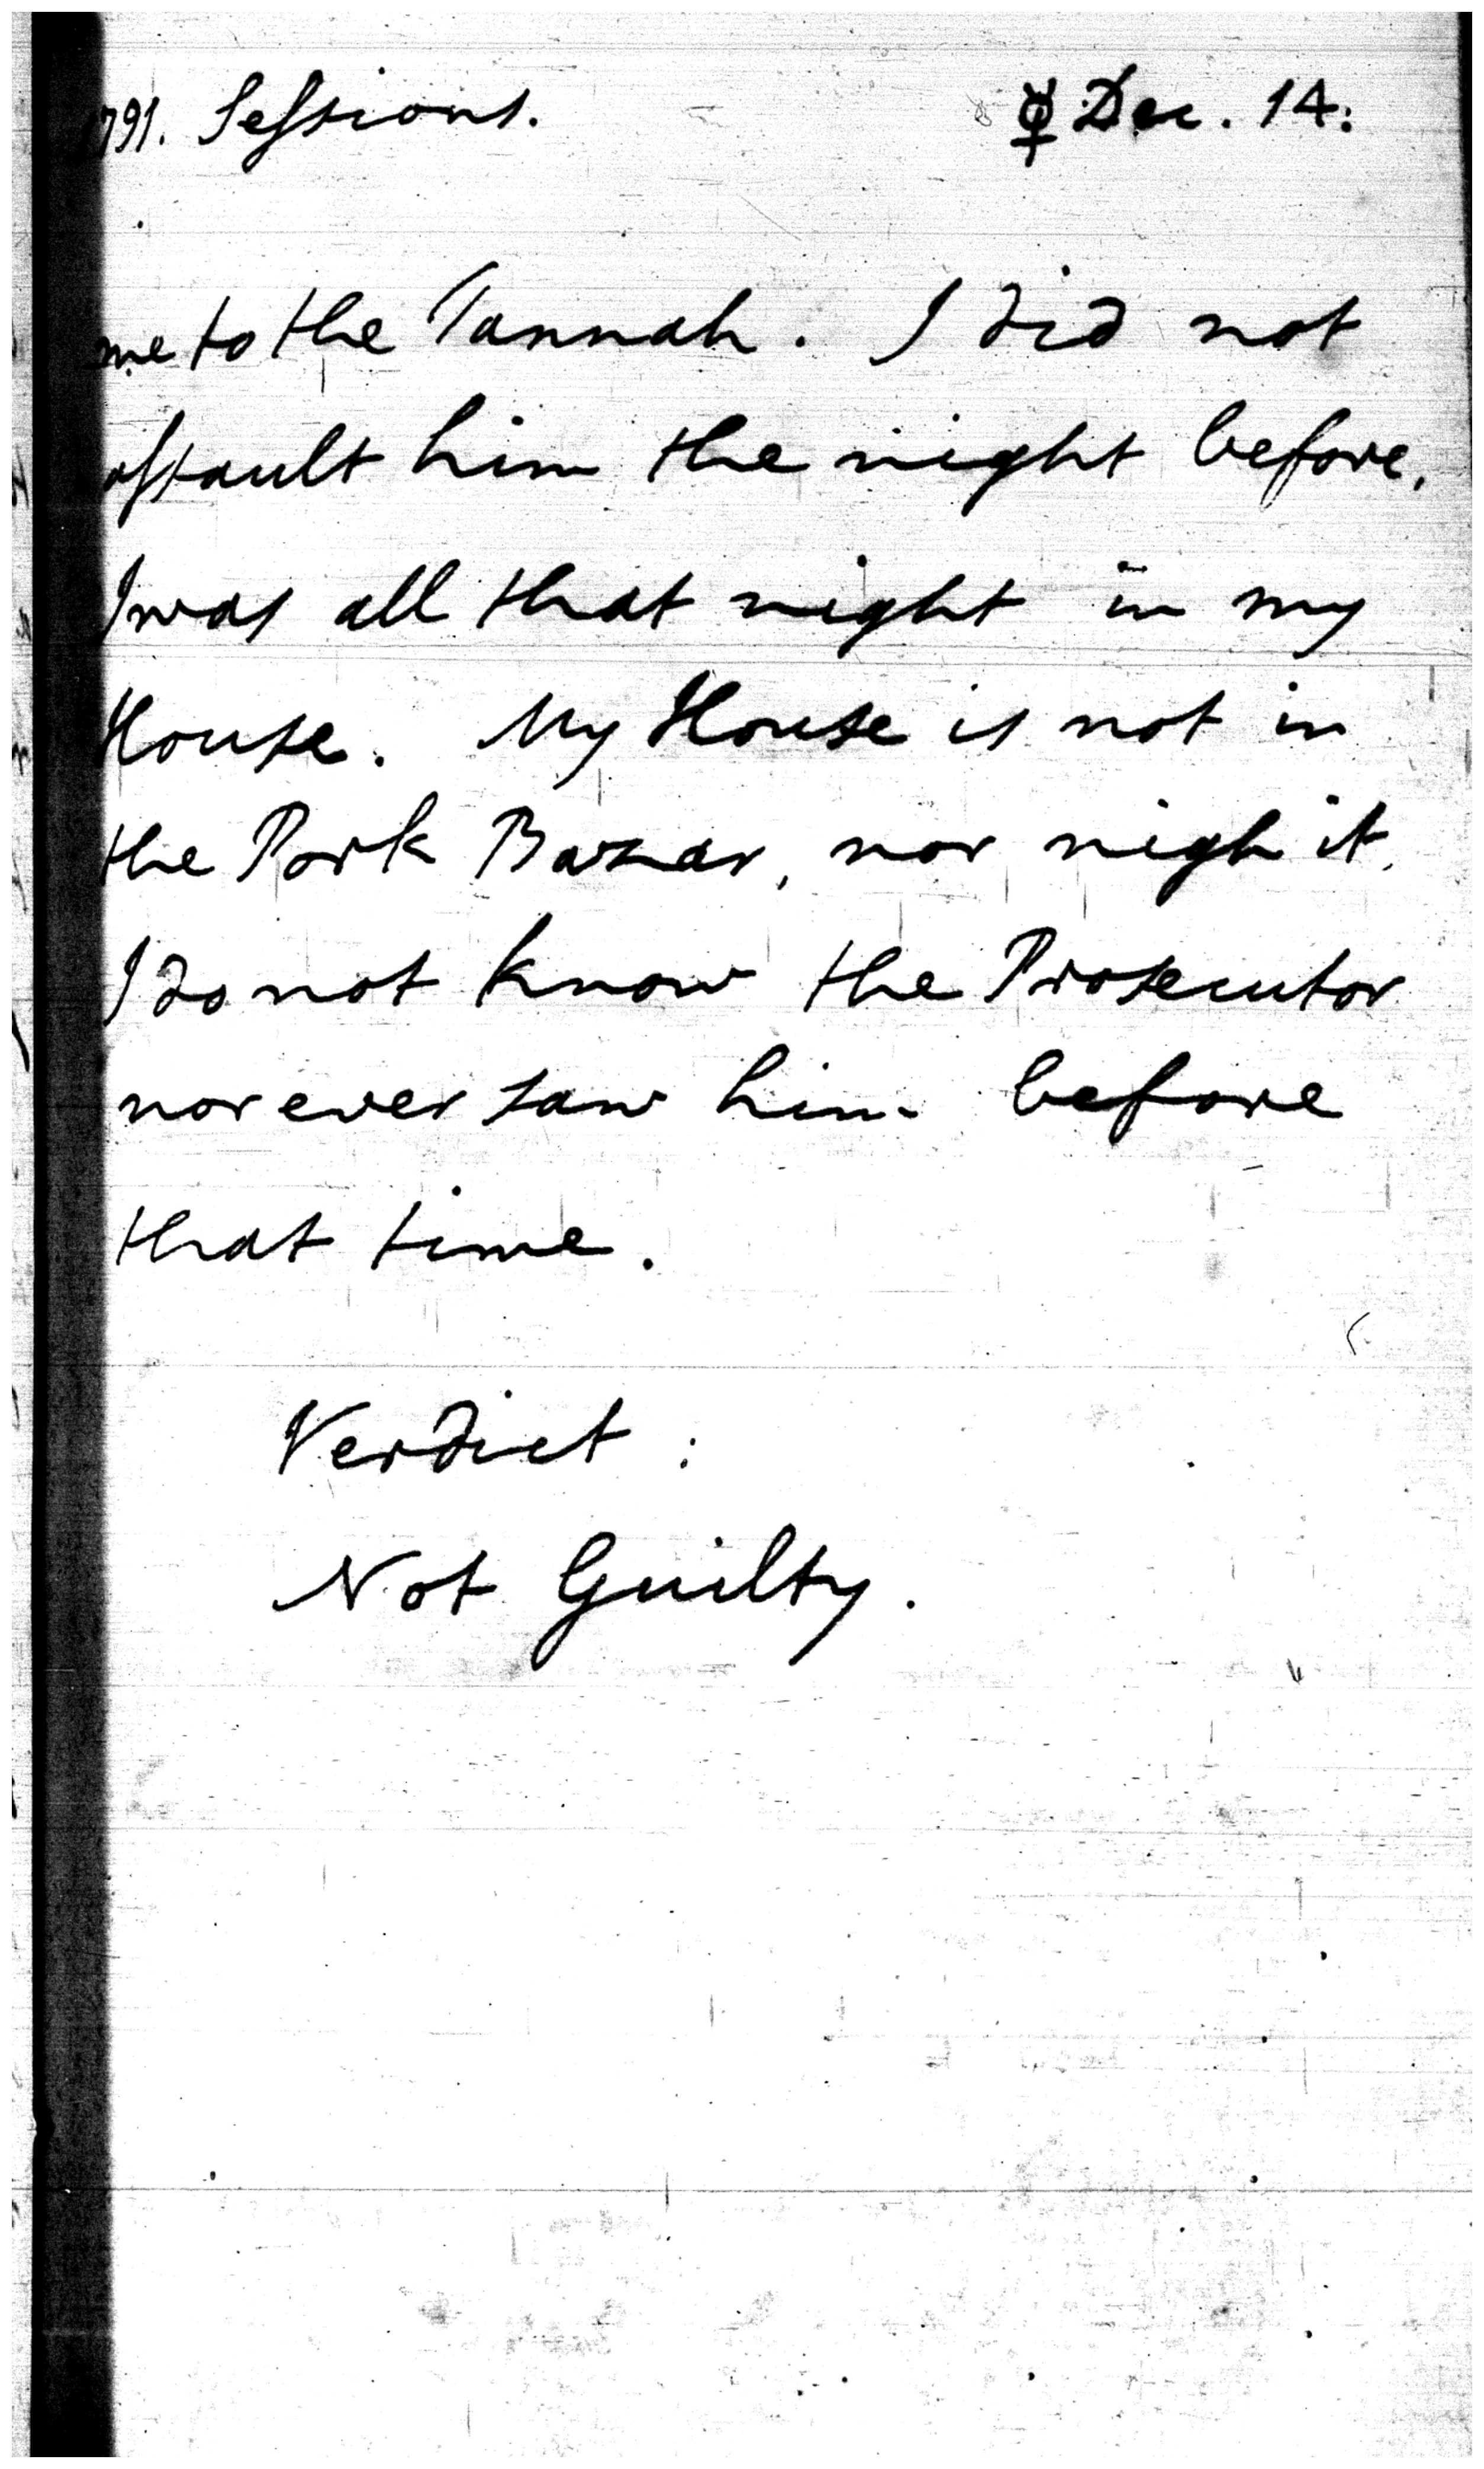 1791. Sefsions. ☿ Dec. 14:
me to the Tannah. I did not
afsault him the night before.
I was all that night in my
House. My House is not in
the Pork Bazar, nor nigh it.
I do not know the Prosecutor
nor ever saw him before
that time.
Verdict:
Not Guilty.